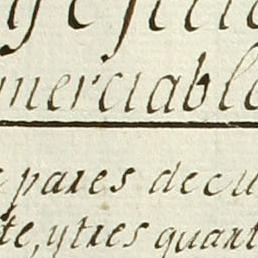 merciable
pares decu
te, ytres quart